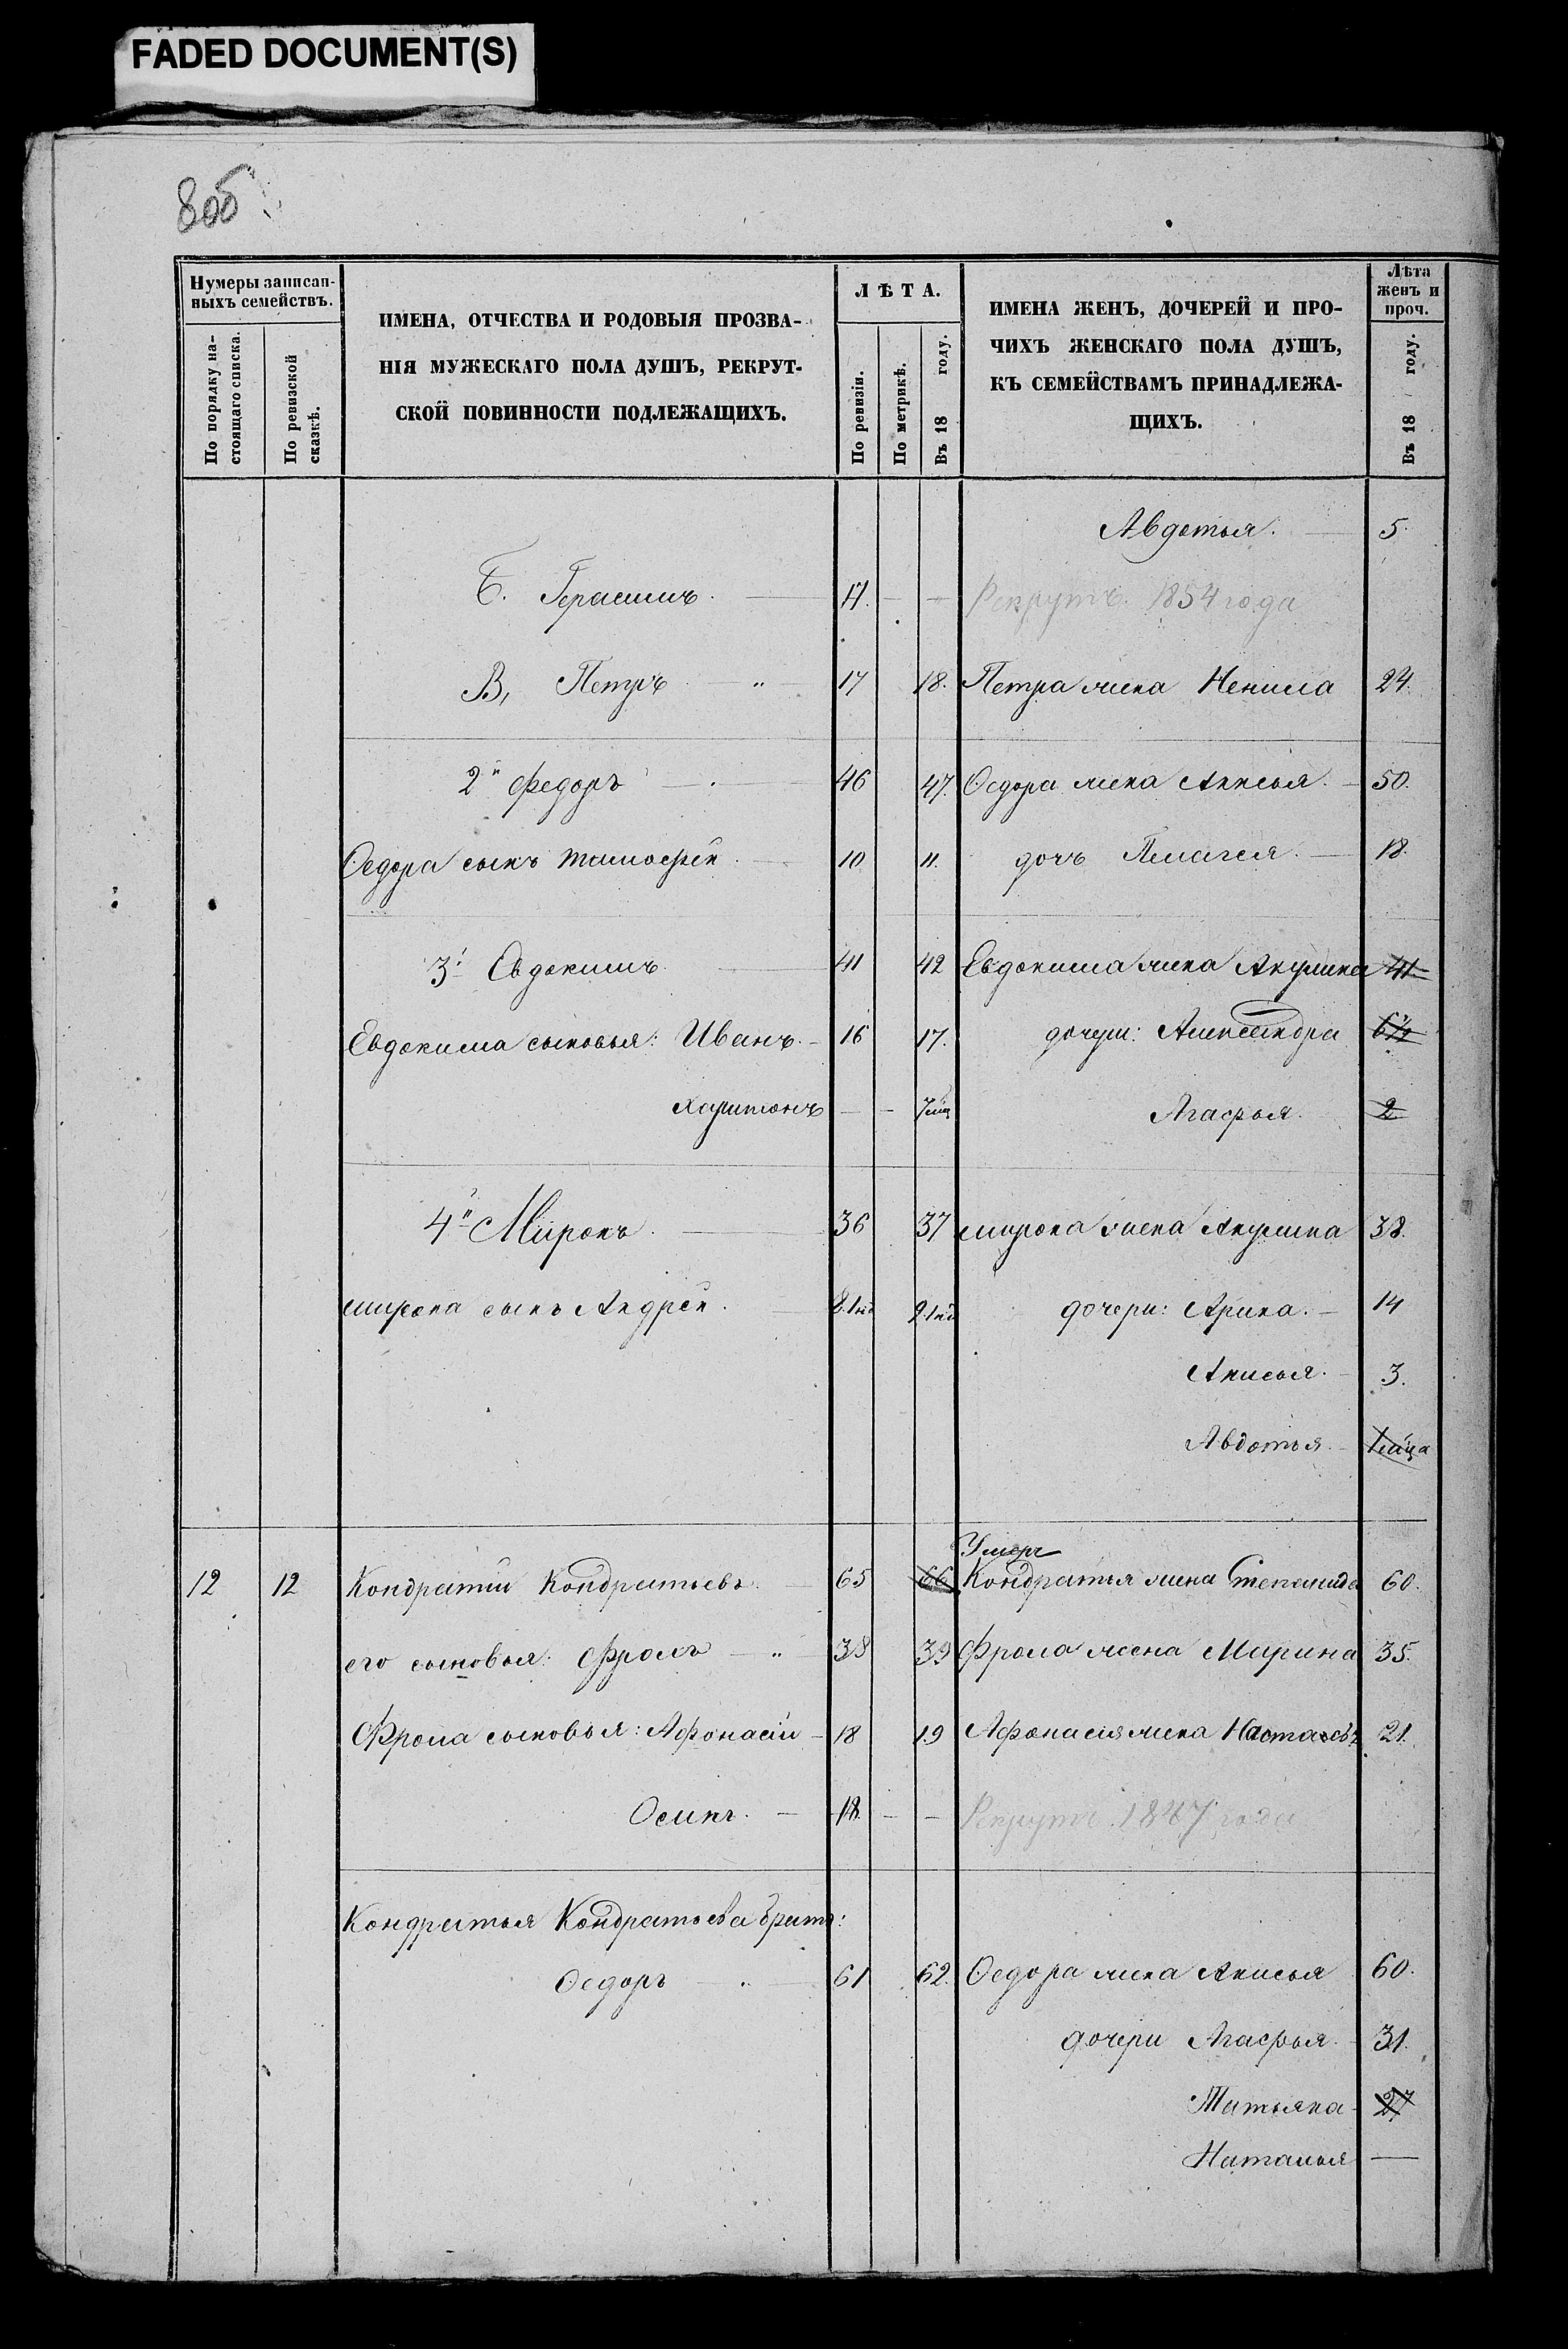 FADED DOCUMENT(S)
Нумеры записан-
ныхъ семействъ.
По порядку на-
стоящаго списка.
По ревизской
сказкѣ.
ИМЕНА, ОТЧЕСТВА И РОДОВЫЯ ПРОЗВА-
НІЯ МУЖЕСКАГО ПОЛА ДУШЪ, РЕКРУТ-
СКОЙ ПОВИННОСТИ ПОДЛЕЖАЩИХЪ.
ЛѢТА.
По ревизіи.
По метрикѣ.
Въ 18 году.
ИМЕНА ЖЕНЪ, ДОЧЕРЕЙ И ПРО-
ЧИХЪ ЖЕНСКАГО ПОЛА ДУШЪ,
КЪ СЕМЕЙСТВАМЪ ПРИНАДЛЕЖА-
ЩИХЪ.
Лѣта
женъ и
проч.
Въ 18 году.
Авдотья. — 5.
Б. Герасимъ. — — — Рекрутъ 1854 года
В, Петръ — " — 17 18. Петра жена 24.
2й Федоръ — 46 47. Ѳедора жена Анисья. — 50.
Ѳедора сынъ Тимофей. — 10 11. дочь Пелагея. — 18.
3й Евдокимъ. — 41 42 Евдокима жена Акулина 41
Евдокима сыновья: Иванъ. — 16 17. дочери: Александра
Харитонъ — — Агафья. 2
4й Миронъ. — 36 37 Мирона жена Акулина 38.
Мирона сынъ Андрей. — дочери: Арина. — 14
Анисья. — 3.
Авдотья. —
Умеръ
12 12 Кондратій Кондратьевъ. 65 66 Кондратья жена Степанида 60.
его сыновья: Фролъ — " 38 39 Фрола жена Марина 35.
Фрола сыновья: Афонасій — 18 19 Афонасія жена Настасья 21.
Осипъ. — 18 — — Рекрутъ 1847 года
Кондратья Кондратьева братъ:
Ѳедоръ — " — 61 62. Ѳедора жена Анисья 60.
дочери Агафья. 31.
Татьяна — 27
Наталья —